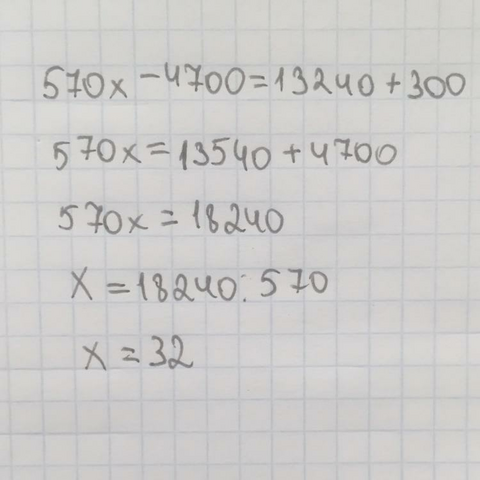 570x - 4700 = 13240 + 300
570x = 13540 + 4700
570x = 18240
x = 18240 : 570
x = 32